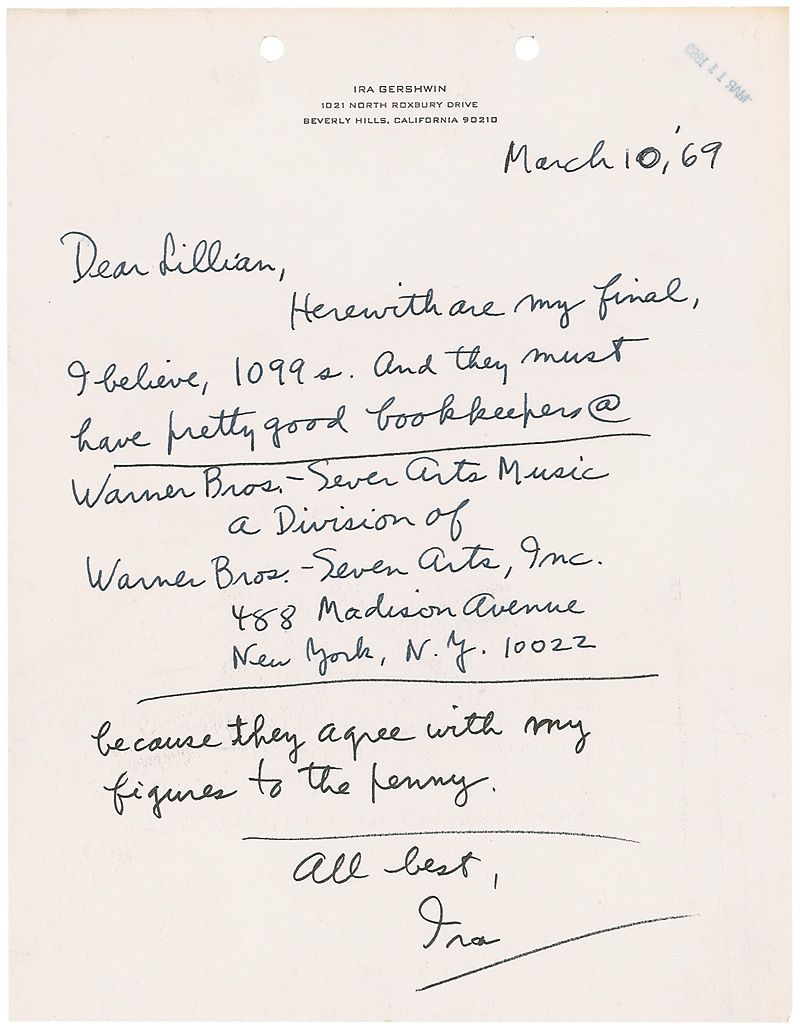 MAR 11 1969
IRA GERSHWIN
1021 NORTH ROXBURY DRIVE
BEVERLY HILLS, CALIFORNIA 90210
March 10, '69
Dear Lillian,
Herewith are my final,
I believe, 1099s. And they must
have pretty good bookkeepers @
Warner Bros.-Seven Arts Music
a Division of
Warner Bros.-Seven Arts, Inc.
488 Madison Avenue
New York, N.Y. 10022
because they agree with my
figures to the penny.
All best,
Ira